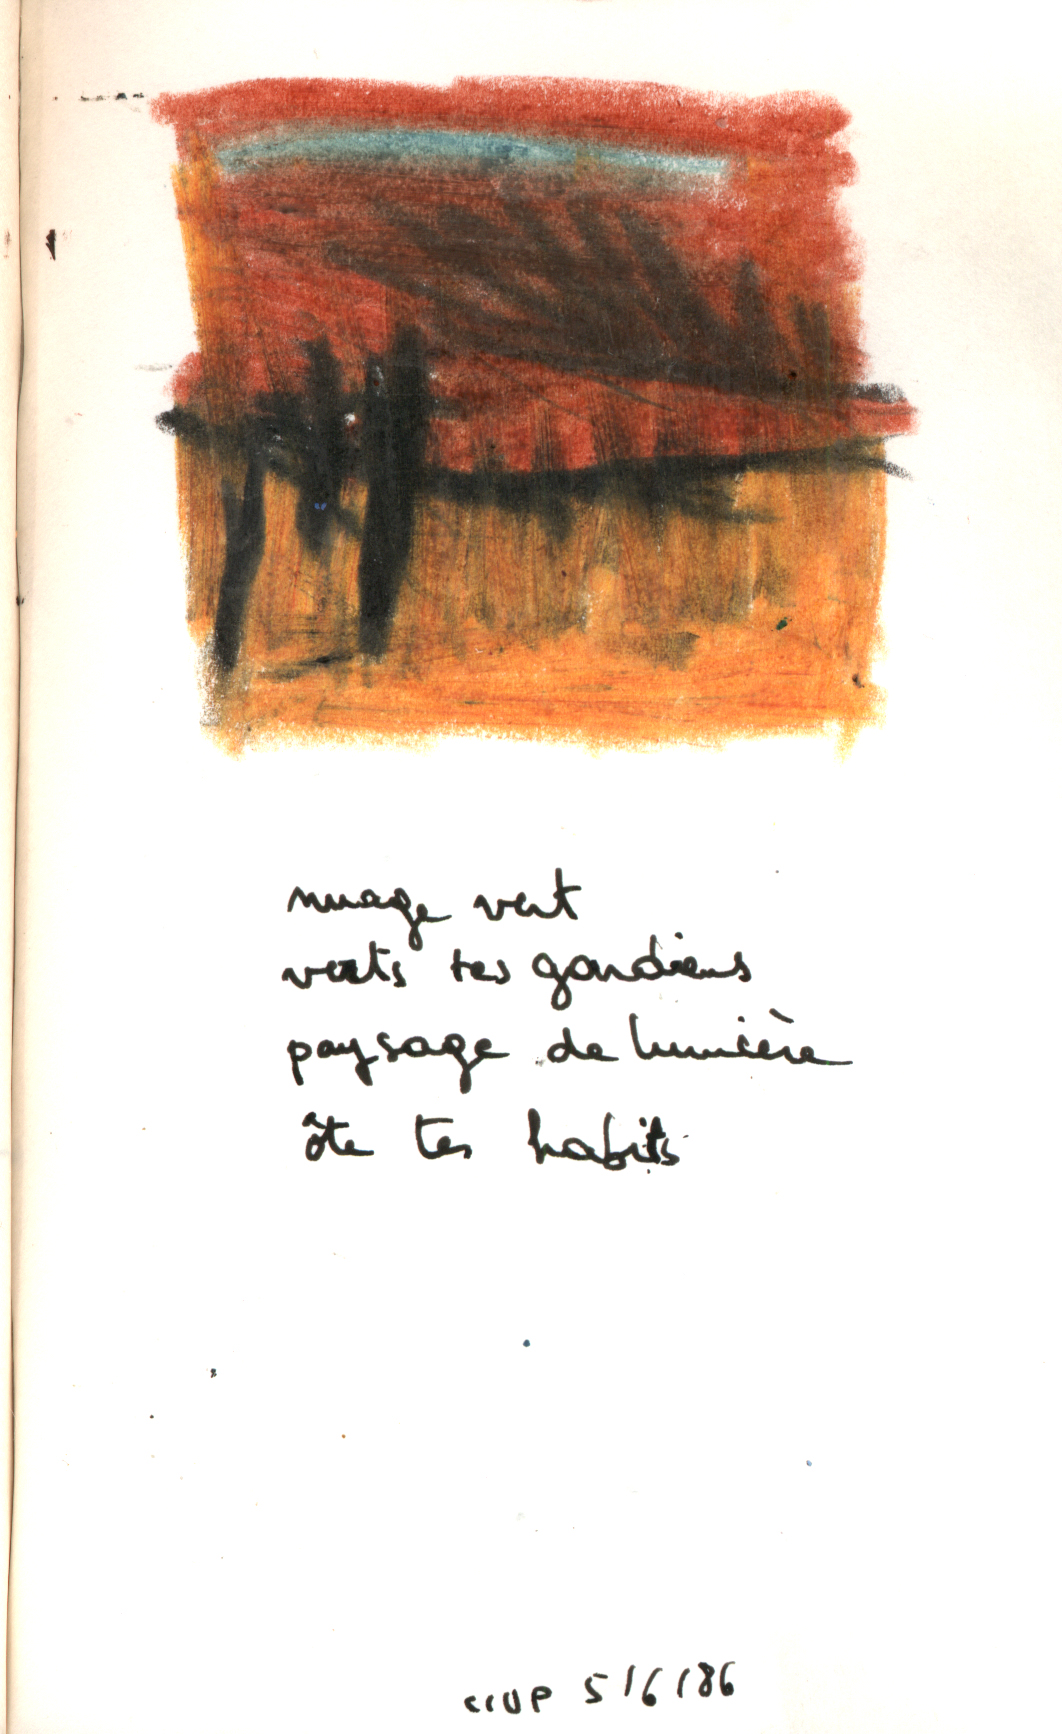 nuage vert
verts tes gardiens
paysage de lumière
ôte tes habits
CIUP 5/6/86